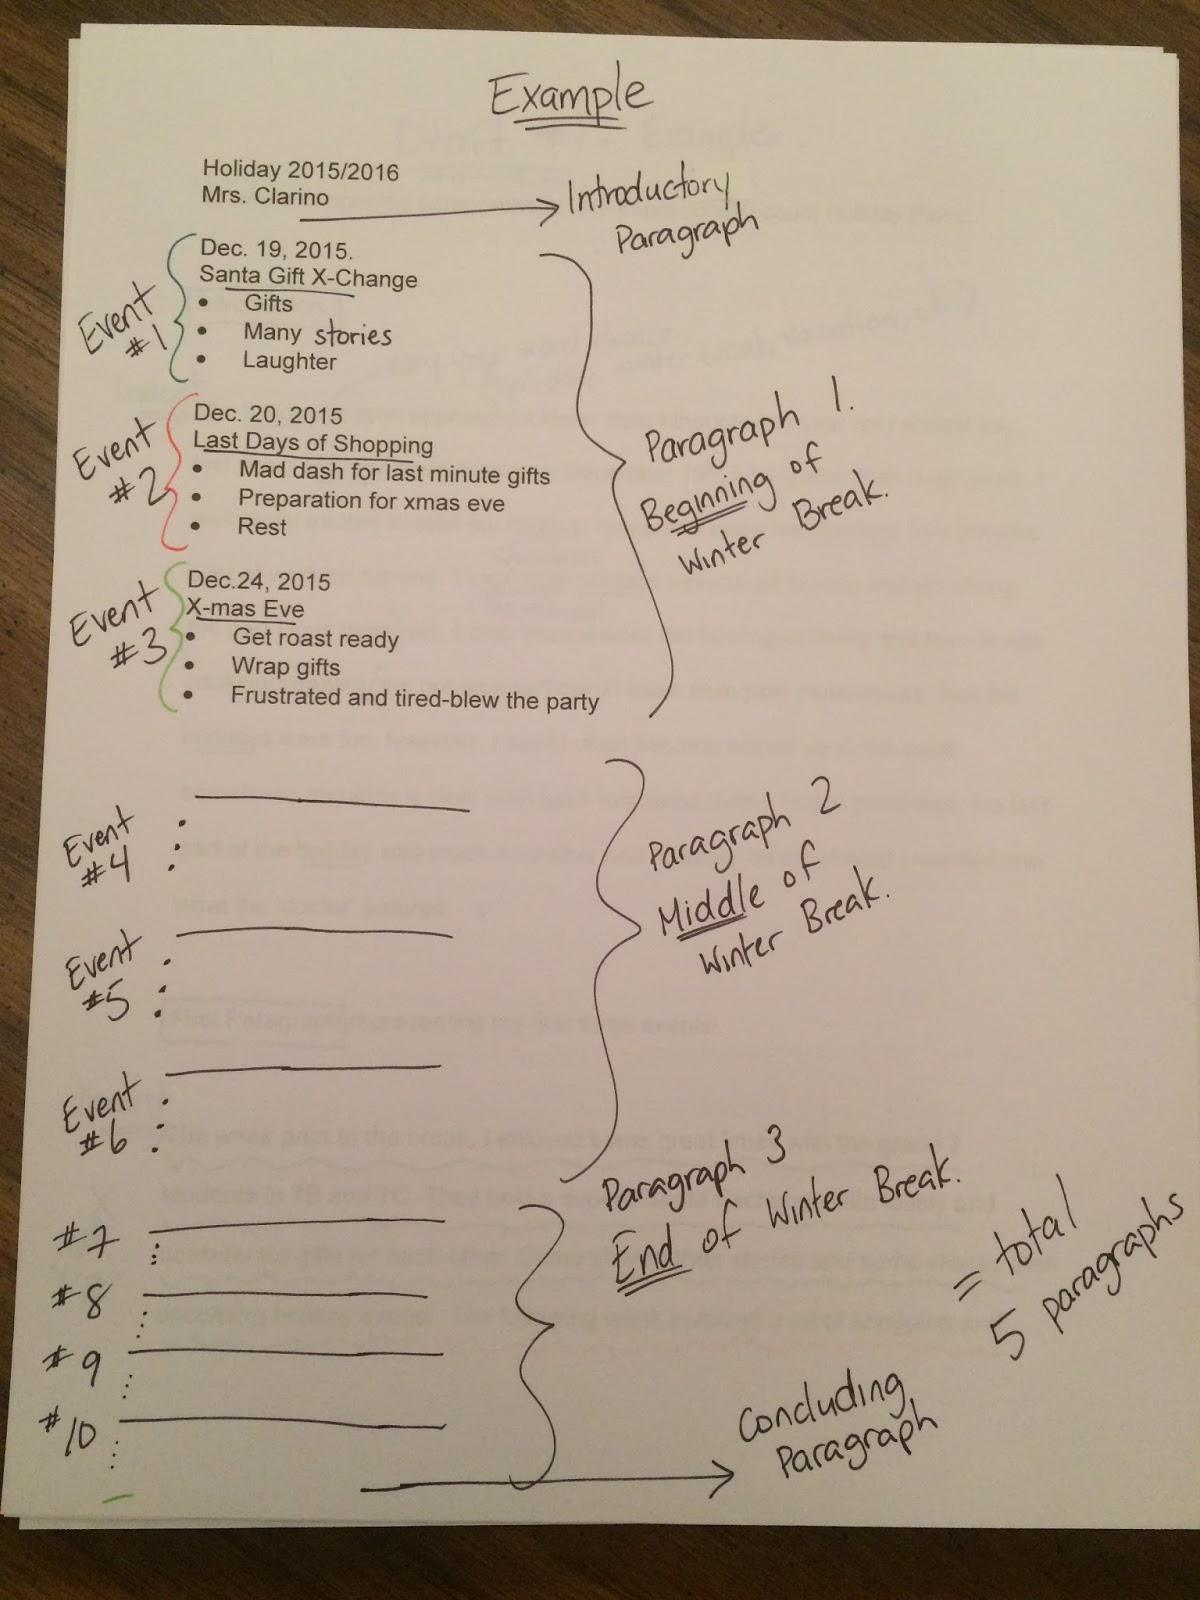 Example
Holiday 2015/2016
Mrs. Clarino
Introductory
Paragraph
Event
#1
Dec. 19, 2015.
Santa Gift X-Change
• Gifts
• Many stories
• Laughter
Event
#2
Dec. 20, 2015
Last Days of Shopping
• Mad dash for last minute gifts
• Preparation for xmas eve
• Rest
Event
#3
Dec.24, 2015
X-mas Eve
• Get roast ready
• Wrap gifts
• Frustrated and tired-blew the party
Paragraph 1.
Beginning of
Winter Break.
Event
#4
Event
#5
Event
#6
Paragraph 2
Middle of
Winter Break.
#7
#8
#9
#10
Paragraph 3
End of Winter Break.
= total
5 paragraphs
Concluding
Paragraph